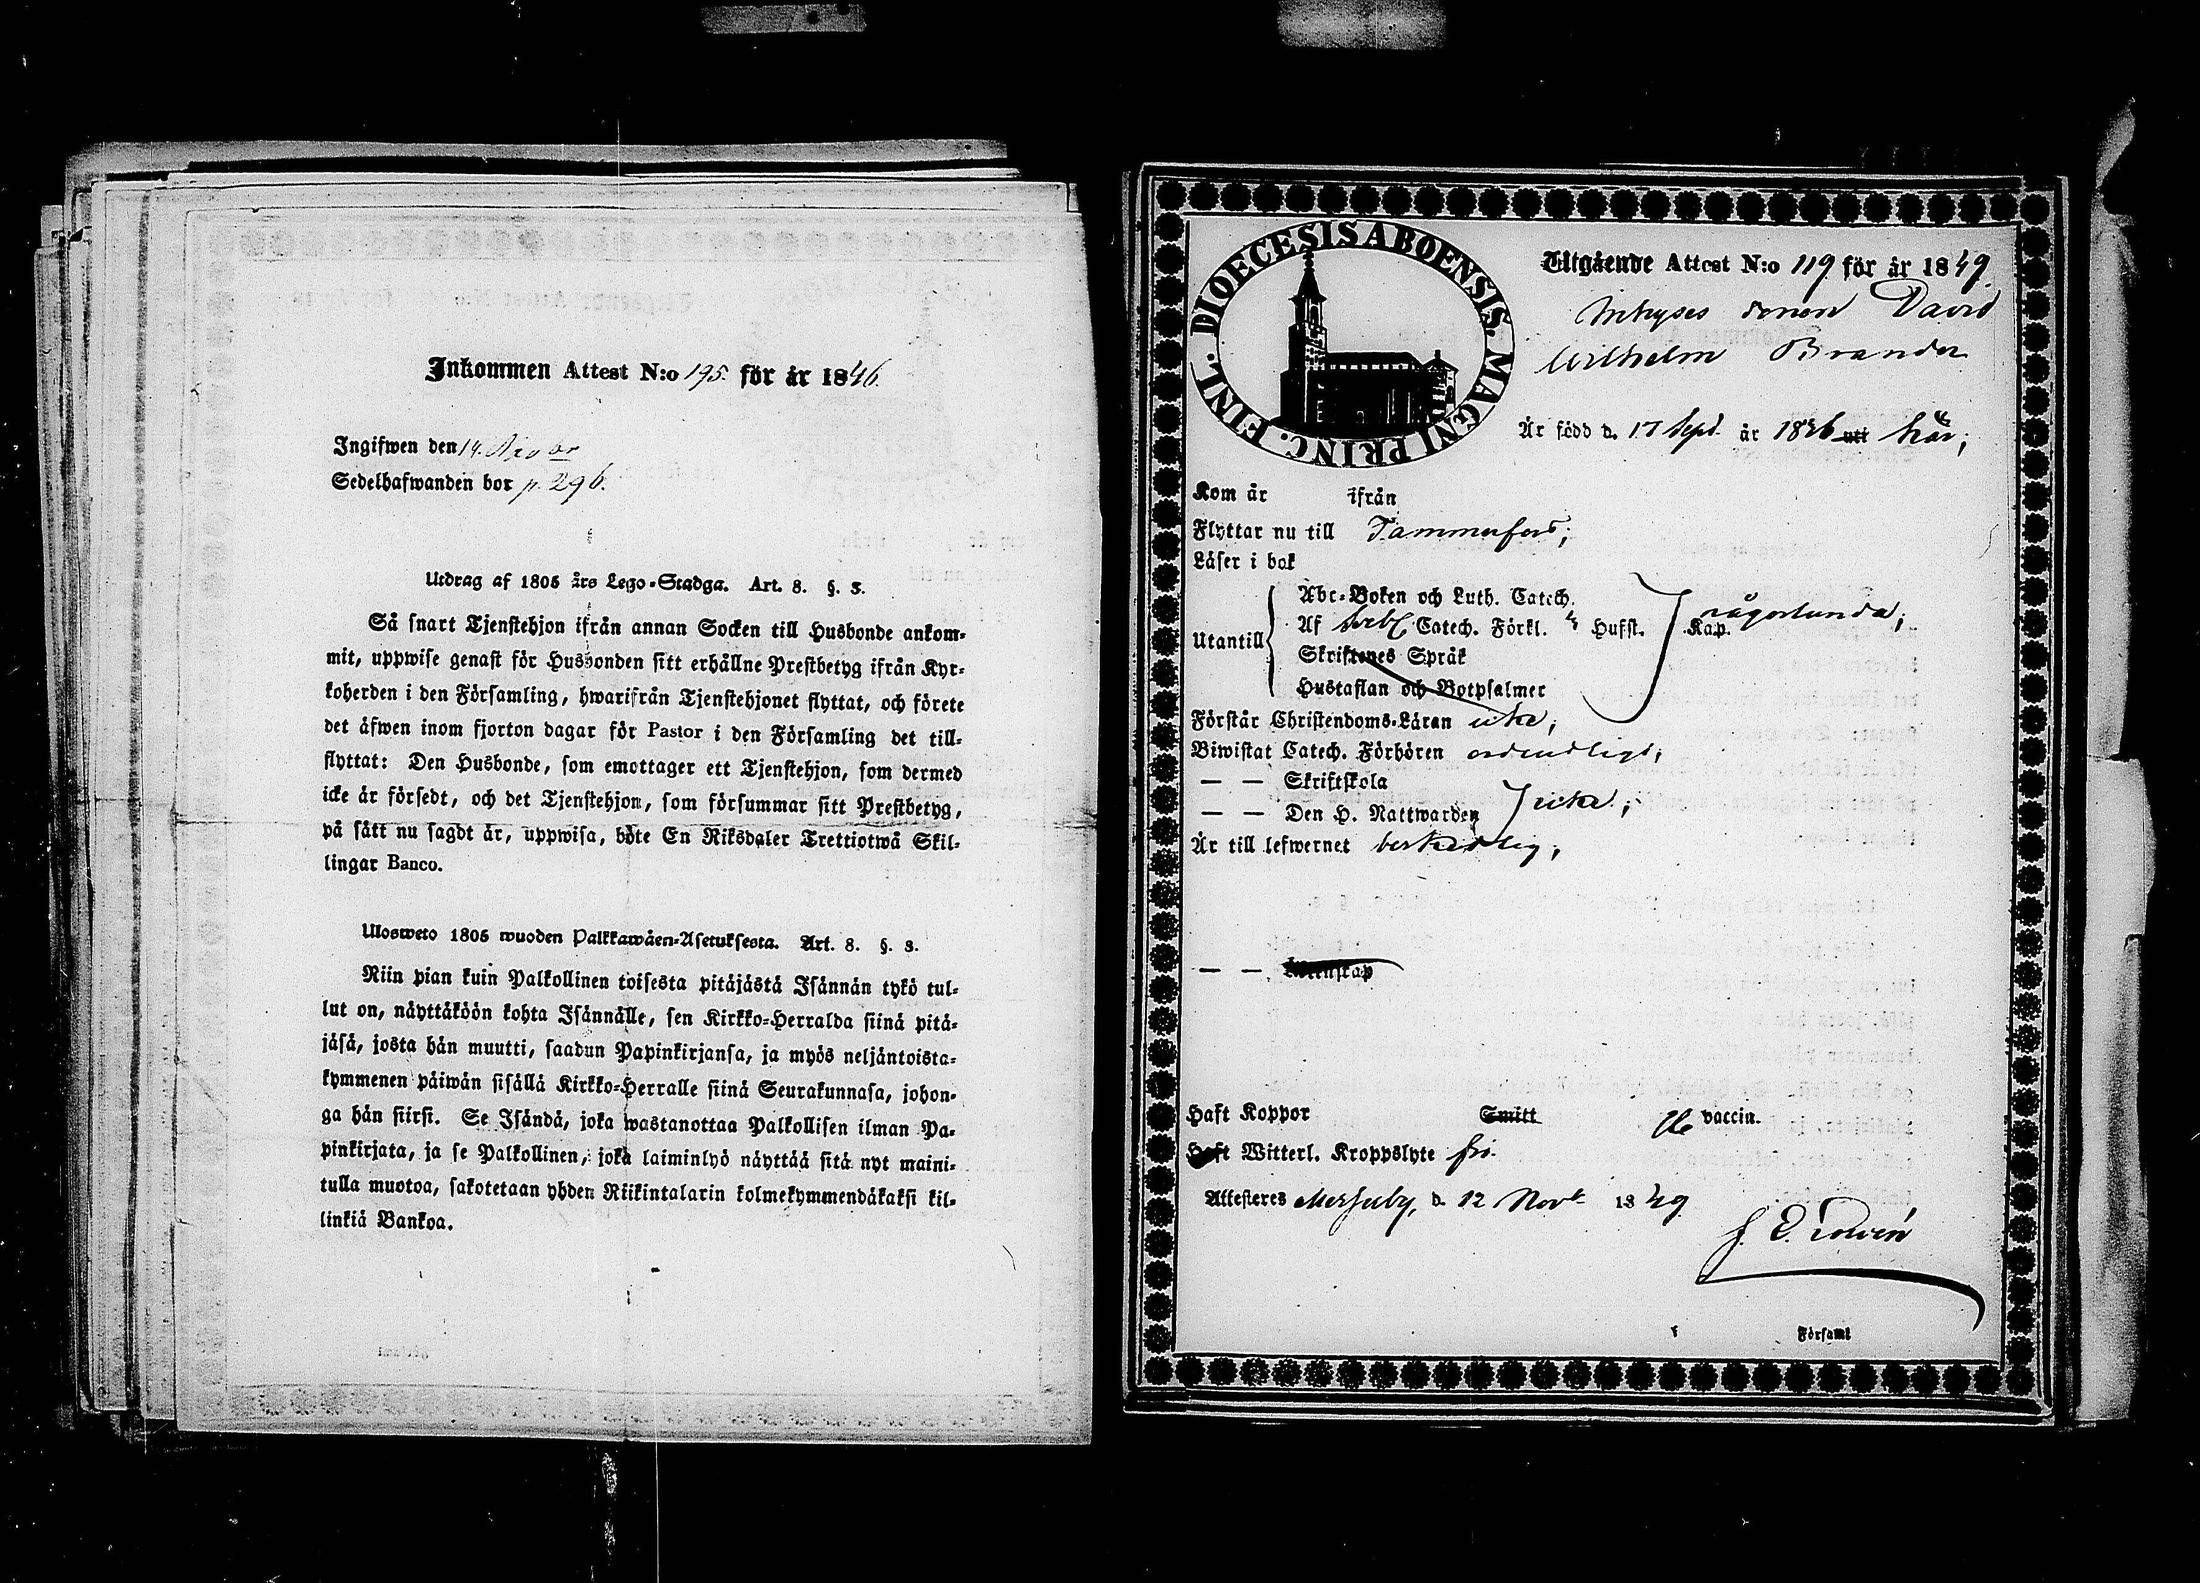 Inkommen Attest N:o 195. för år 1846.
Ingifwen den 14. Nov br
Sedelhafwanden bor p. 296.
Utdrag af 1805 års Lego-Stadga. Art. 8. §. 3.
Så snart Tjenstehjon ifrån annan Socken till Husbonde ankom-
mit, uppwise genast för Husbonden sitt erhållne Prestbetyg ifrån Kyr-
koherden i den Församling, hwarifrån Tjenstehjonet flyttat, och förete
det äfwen inom fjorton dagar för Pastor i den Församling det till-
flyttat: Den Husbonde, som emottager ett Tjenstehjon, som dermed
icke är försedt, och det Tjenstehjon, som försummar sitt Prestbetyg,
på sätt nu sagdt är, uppwisa, böte En Riksdaler Trettiotwå Skil-
lingar Banco.
Ulosweto 1805 wuoden Palkkawäen-Asetuksesta. Art. 8. §. 3.
Niin pian kuin Palkollinen toisesta pitäjästä Isännän tykö tul-
lut on, näyttäköön kohta Isännälle, sen Kirkko-Herralda siinä pitä-
jäsä, josta hän muutti, saadun Papinkirjansa, ja myös neljäntoista-
kymmenen päiwän sisällä Kirkko-Herralle siinä Seurakunnasa, johon-
ga hän siirsi. Se Isändä, joka wastanottaa Palkollisen ilman Pa-
pinkirjata, ja se Palkollinen, joka laiminlyö näyttää sitä nyt maini-
tulla muotoa, sakotetaan yhden Riikintalarin kolmekymmendäkaksi kil-
linkiä Bankoa.
DIOECESIS ABOENSIS. MAGNI PRINC. FINL.
Utgående Attest N:o 119 för år 1849.
Inhyses sonen David
Wilhelm Brander
Är född d. 17 Sept. år 1826 uti här;
Kom år ifrån
Flyttar nu till Tammerfors;
Läser i bok
Utantill
Abc-Boken och Luth. Catech.
Af Catech. Förkl. Hufst. Kap. någorlunda;
Skriftenes Språk
Hustaflan och Botpsalmer
Förstår Christendoms-Läran icke;
Biwistat Catech. Förhören ordentligt;
— — Skriftskola
— — Den H. Nattwarden icke;
Är till lefwernet beskedlig;
— — Kunskap
Haft Koppor Smitt vaccin.
Haft Witterl. Kroppslyte fri.
Attesteres Messuby, d. 12 Nov. 1849
Församl